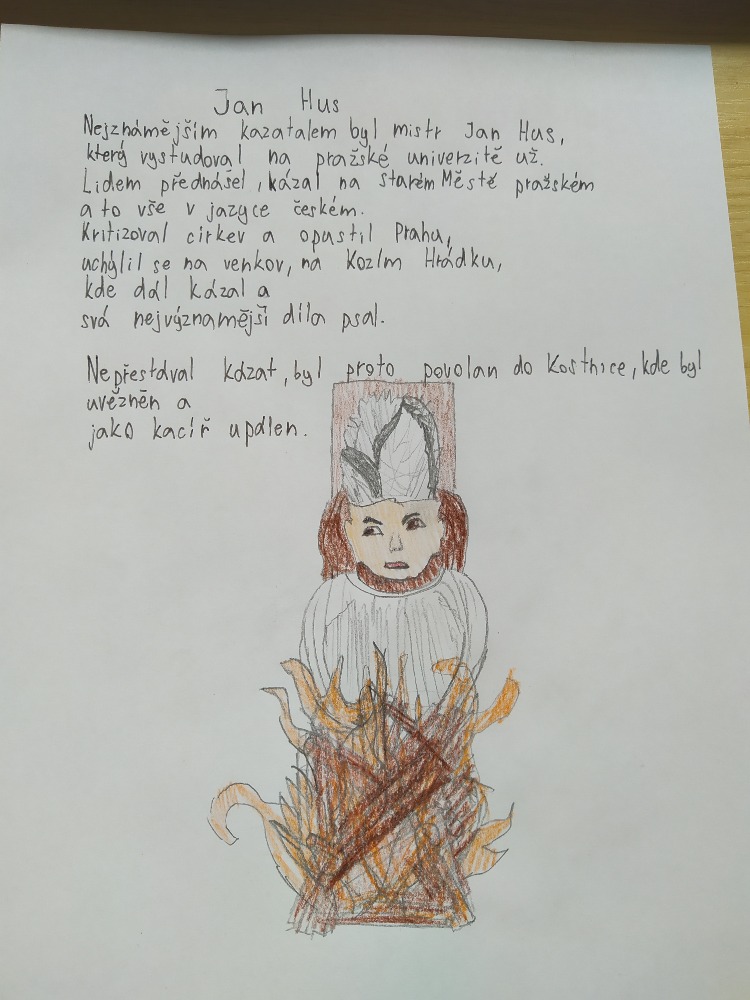 Jan Hus
Nejznámějším kazatalem byl mistr Jan Hus,
který vystudoval na pražské univerzitě už.
Lidem přednášel, kázal na starém Městě pražském
a to vše v jazyce českém.
Kritizoval církev a opustil Prahu,
uchýlil se na venkov, na Kozím Hrádku,
kde dál kázal a
svá nejvýznamější díla psal.
Nepřestával kázat, byl proto povolan do Kostnice, kde byl
uvězněn a
jako kacíř upálen.